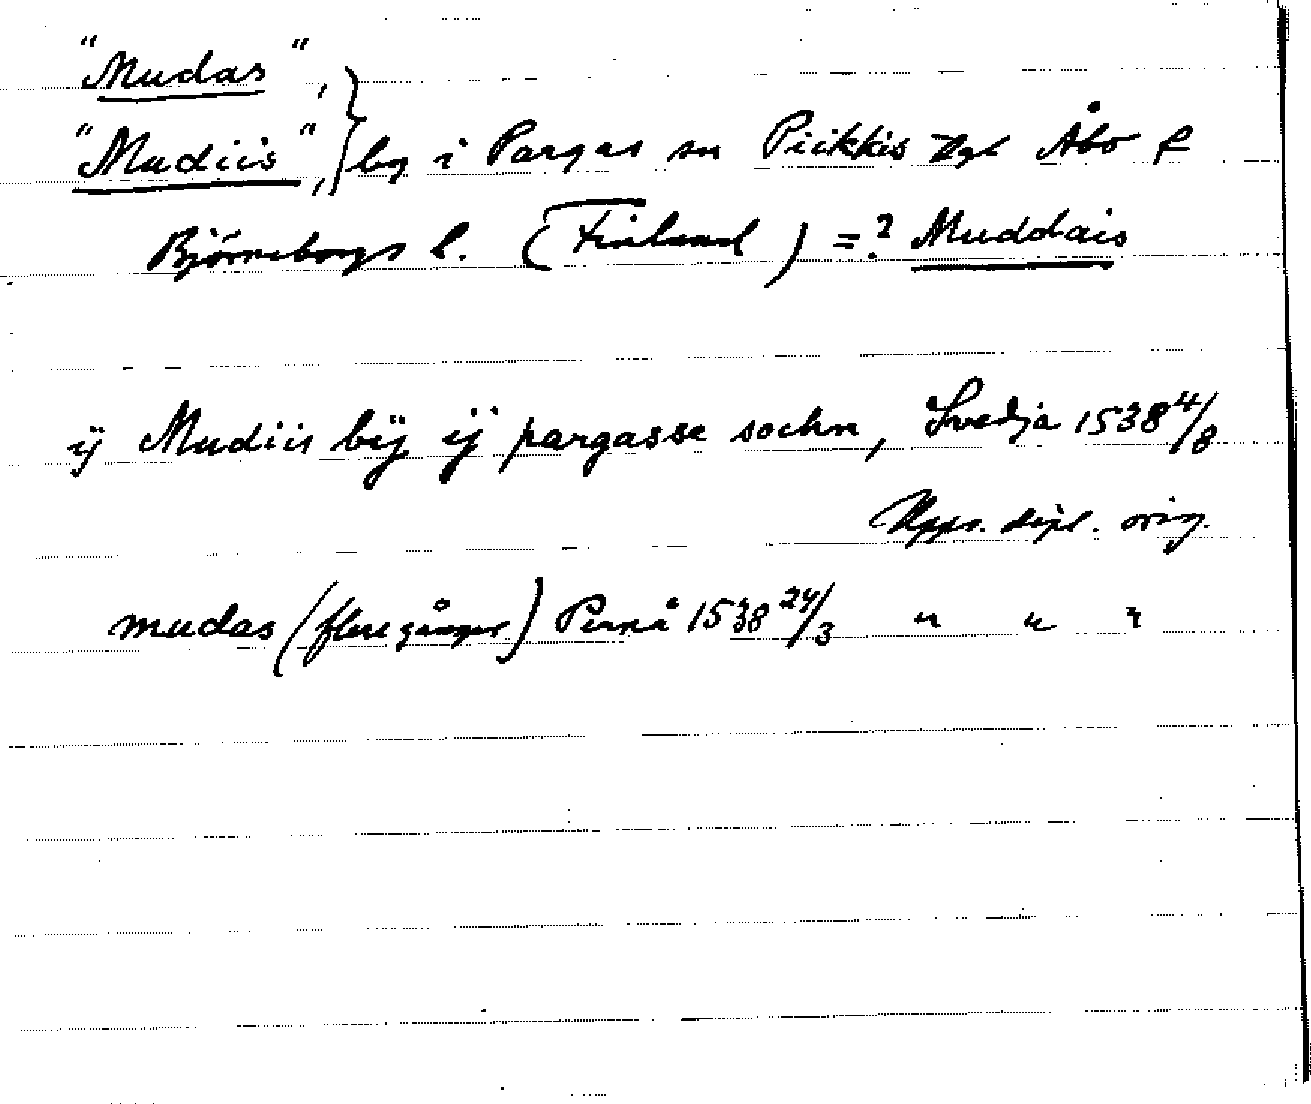 "Mudas",
"Mudiis", } by i Pargas sn Piikkis hd Åbo &
Björneborgs l. (Finland) =? Muddais
ij Mudiis bÿ ij pargasse sochn, Svedja 1538 4/8
Upps. dipl. orig.
mudas (flere gånger) Pernå 1538 24/3 " " "